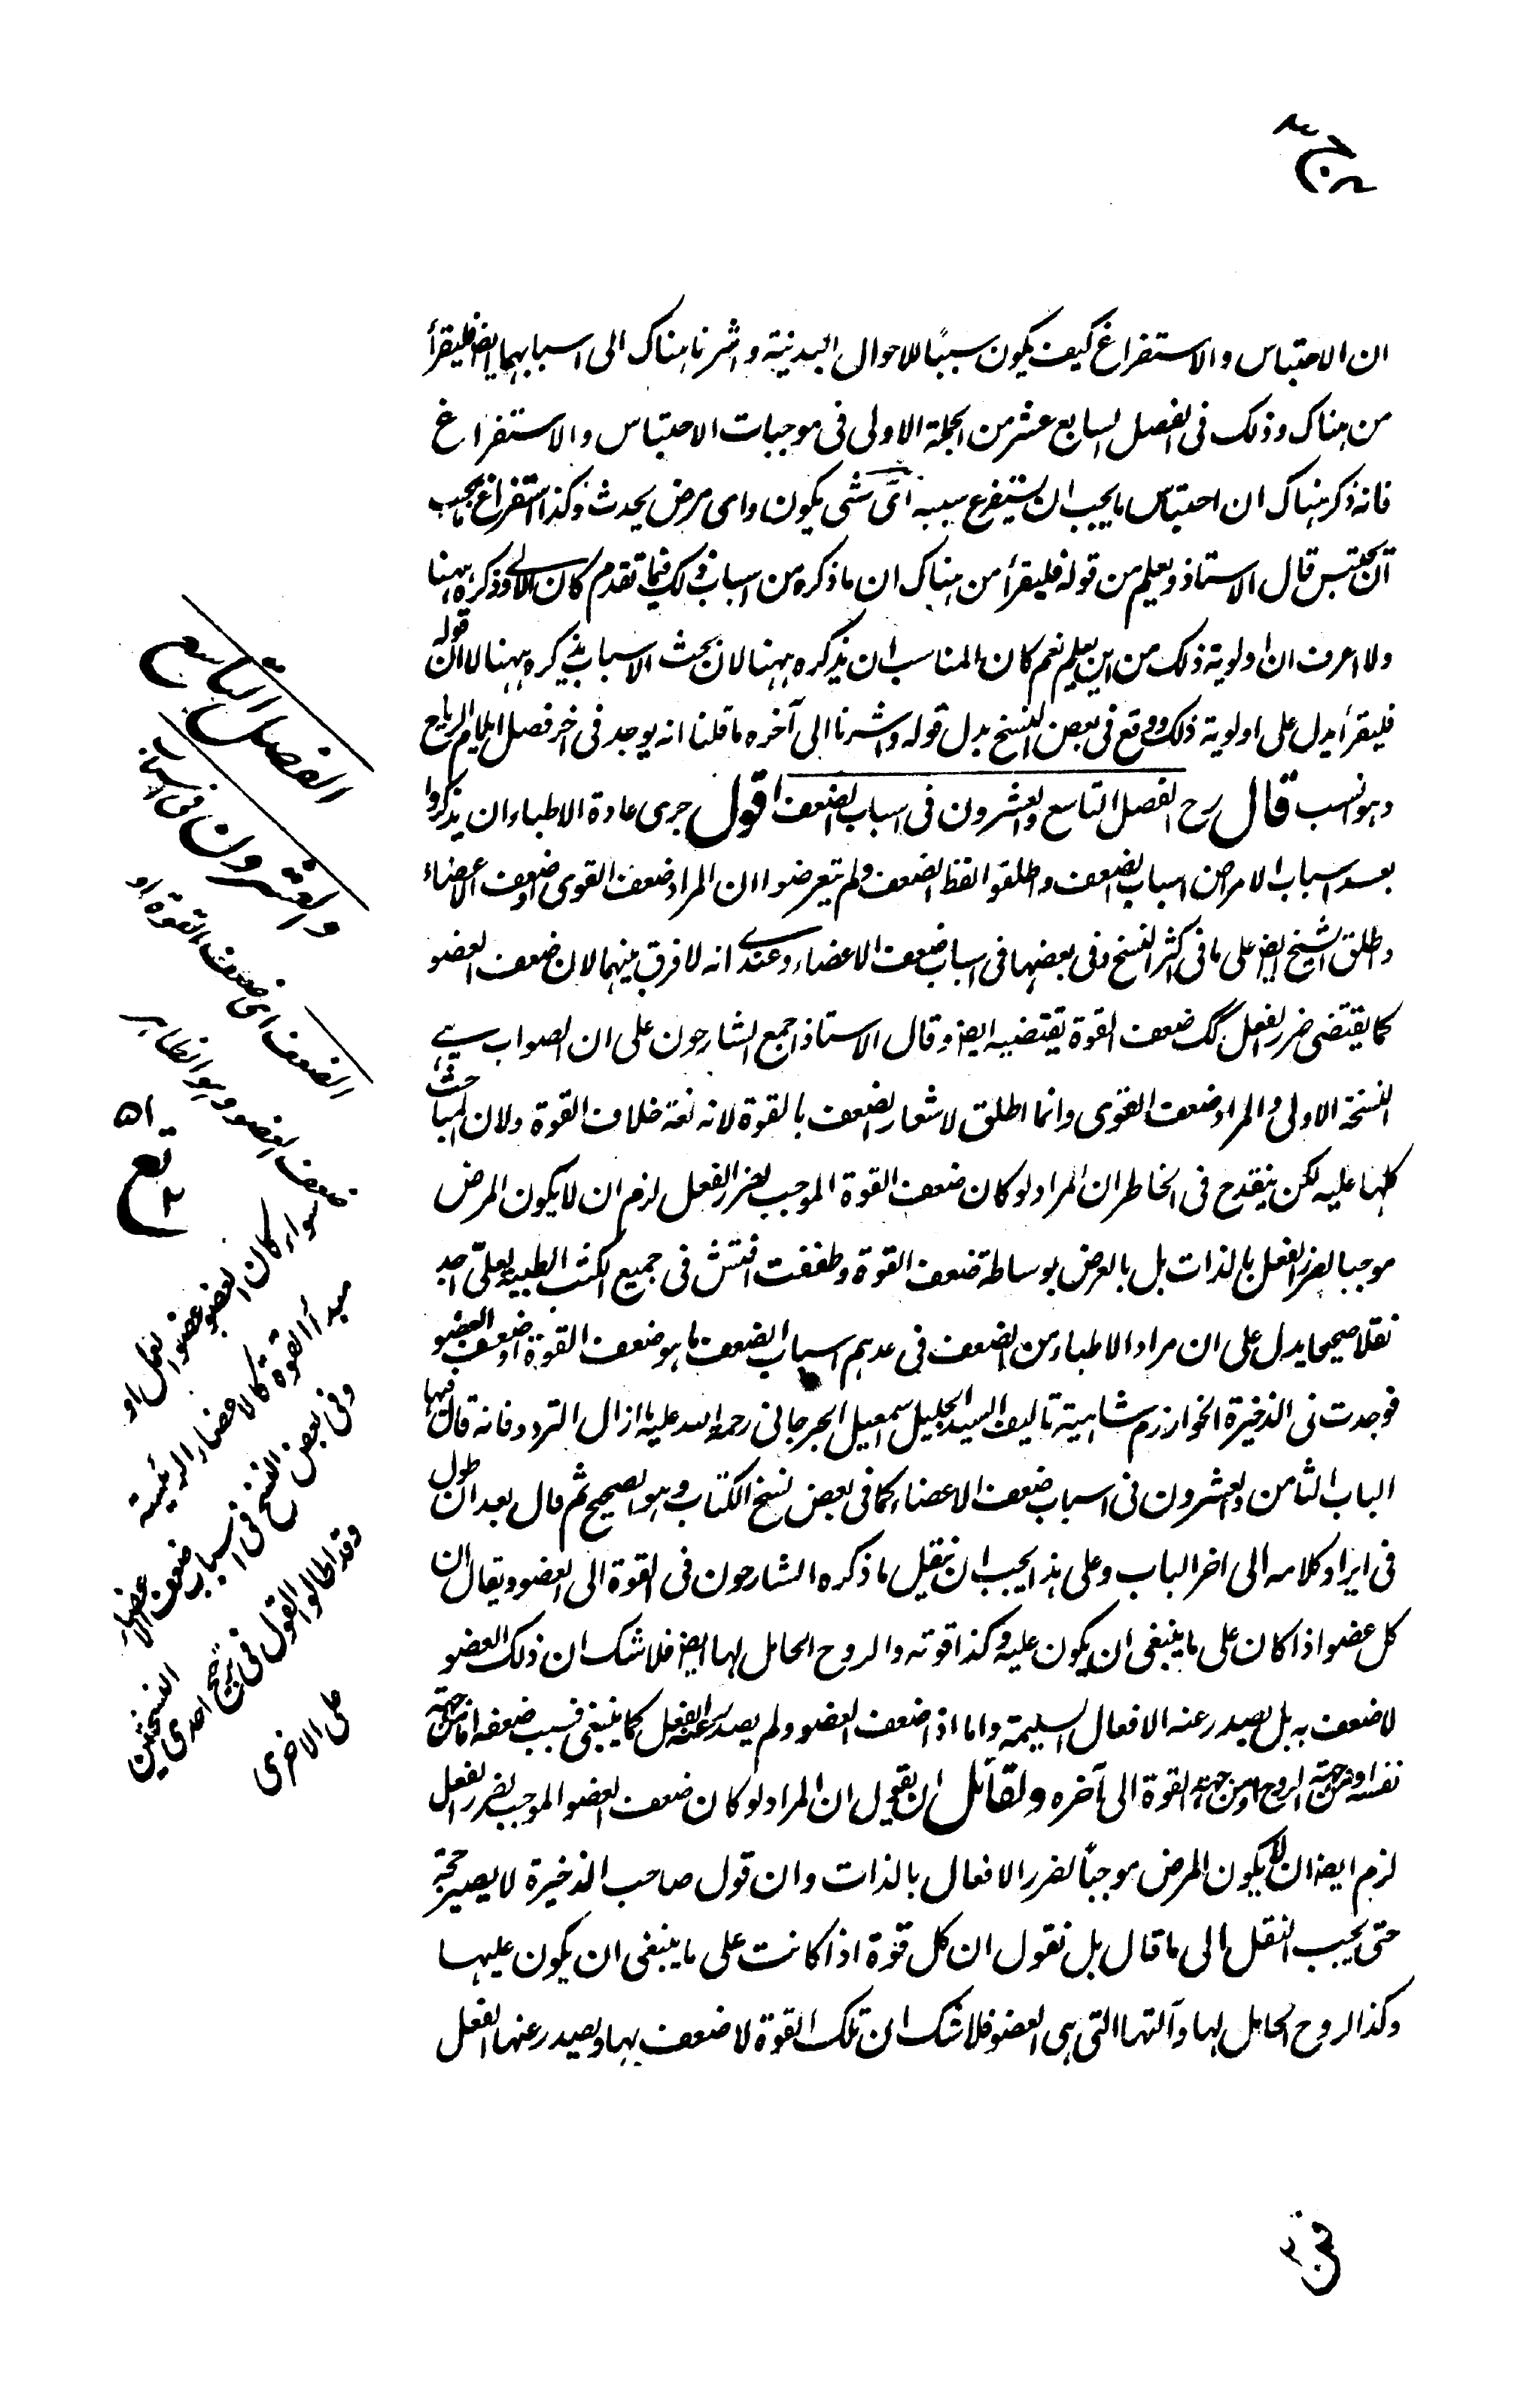 ان الاحتباس والاستفراغ كيف يكون سببًا للاحوال البدنية واشرنا هناك الى اسبابهما ايضا فليقرأ
من هناك وذلك فى الفصل السابع عشر من الجملة الاولى فى موجبات الاحتباس والاستفراغ
فانه ذكر هناك ان احتباس ما يجب ان يستفرغ بسببه اىّ شى يكون واى مرض يحدث وكذا استفراغ ما يجب
ان يحتبس قال الاستاذ ويعلم من قوله فليقرأ من هناك ان ما ذكره من اسباب ذلك فيما تقدم كان الاولى ذكره ههنا
ولا اعرف ان اولوية ذلك من اين يعلم نعم كان المناسب ان يذكره ههنا لان بحث الاسباب يذكره ههنا لا ان قوله
فليقرأ يدل على اولوية ذلك ووقع فى بعض النسخ بدل قوله واشرنا الى آخره ما قلنا انه يوجد فى اخر فصل ايلام الرياح
وهو انسب قال رح الفصل التاسع والعشرون فى اسباب الضعف اقول جرى عادة الاطباء ان يذكروا
بعد اسباب الامراض اسباب الضعف واطلقوا لفظ الضعف ولم يتعرضوا ان المراد ضعف القوى او ضعف الاعضاء
واطلق الشيخ ايضا على ما فى اكثر النسخ وفى بعضها فى اسباب ضعف الاعضاء وعندى انه لا فرق بينهما لان ضعف العضو
كما يقتضى ضرر الفعل كك ضعف القوة يقتضيه ايضا وقال الاستاذ اجمع الشارحون على ان الصواب هى
النسخة الاولى والمراد ضعف القوى وانما اطلق لاشعار الضعف بالقوة لانه لغة خلاف القوة ولان المباحث
كلها عليه لكن ينقدح فى الخاطر ان المراد لو كان ضعف القوة الموجب لضرر الفعل لزم ان لا يكون المرض
موجبا لضرر الفعل بالذات بل بالعرض بوساطة ضعف القوة وطفقت افتش فى جميع الكتب الطبية لعلّى اجد
نقلا صحيحا يدل على ان مراد الاطباء من الضعف فى عدهم اسباب الضعف ما هو ضعف القوة او ضعف العضو
فوجدت فى الذخيرة الخوارزم شاهية تاليف السيد الجليل اسمعيل الجرجانى رحمة الله عليه ما ازال التردد فانه قال فيها
الباب الثامن والعشرون فى اسباب ضعف الاعضاء كما فى بعض نسخ الكتاب وهو الصحيح ثم قال بعد ان طول
فى ايراد كلامه الى اخر الباب وعلى هذا يجب ان ينقل ما ذكره الشارحون فى القوة الى العضو ويقال ان
كل عضو اذا كان على ما ينبغى ان يكون عليه وكذا قوته والروح الحامل لها ايضا فلا شك ان ذلك العضو
لا ضعف به بل يصدر عنه الافعال السليمة واما اذا ضعف العضو ولم يصدر عنه الفعل كما ينبغى فسبب ضعفه اما من جهة
نفسه او من جهة الروح او من جهة القوة الى آخره ولقائل ان يقول ان المراد لو كان ضعف العضو الموجب لضرر الفعل
لزم ايضا ان لا يكون المرض موجباً لضرر الافعال بالذات وان قول صاحب الذخيرة لا يصير حجة
حتى يجب النقل الى ما قال بل نقول ان كل قوة اذا كانت على ما ينبغى ان يكون عليها
وكذا الروح الحامل لها وآلتها التى هى العضو فلا شك ان تلك القوة لا ضعف بها ويصدر عنها الفعل
الفصل التاسع
والعشرون فى اسباب
الضعف اى ضعف القوة او
ضعف العضو وهو الظاهر
سواء كان العضو عضوا لفعل او
مبدأ القوة كالاعضاء الرئيسة
وفى بعض النسخ فى اسباب ضعف الاعضاء
وقد اطالوا القول فى ترجيح احدى النسختين
على الاخرى